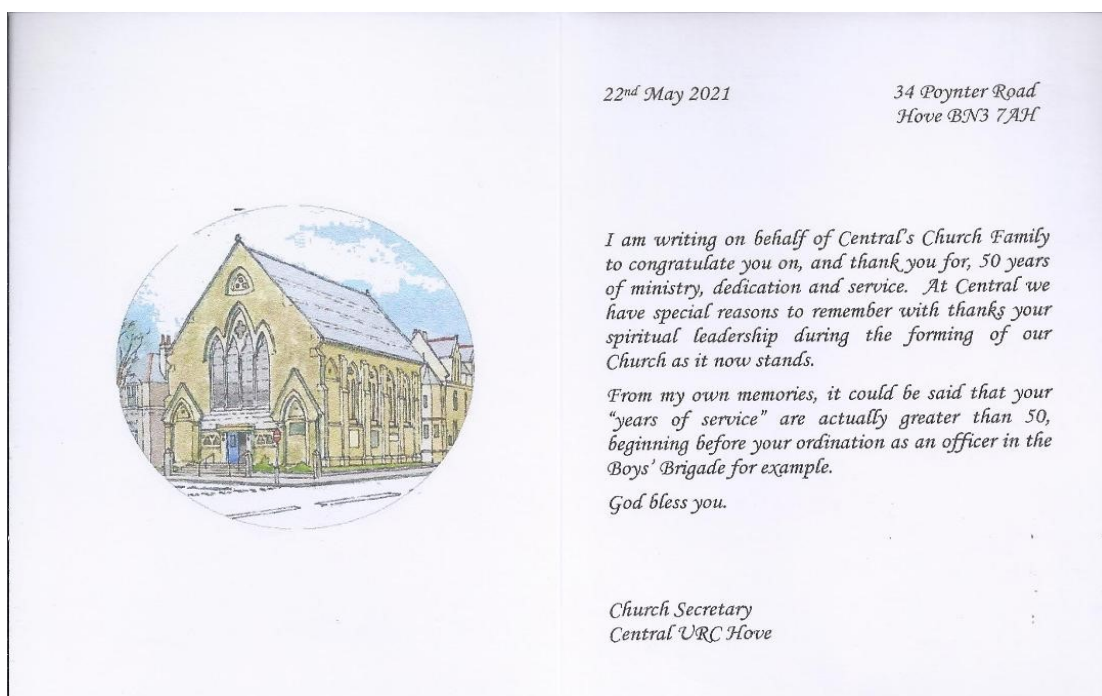 22nd May 2021
34 Poynter Road
Hove BN3 7AH
I am writing on behalf of Central's Church Family
to congratulate you on, and thank you for, 50 years
of ministry, dedication and service. At Central we
have special reasons to remember with thanks your
spiritual leadership during the forming of our
Church as it now stands.
From my own memories, it could be said that your
“years of service” are actually greater than 50,
beginning before your ordination as an officer in the
Boys' Brigade for example.
God bless you.
Church Secretary
Central URC Hove